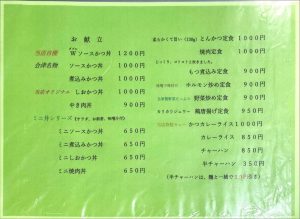 お献立
当店自慢 Wソースかつ丼 1200円
会津名物 ソースかつ丼 1000円
煮込みかつ丼 1000円
当店オリジナル しおかつ丼 1000円
やき肉丼 900円
ミニ丼シリーズ
ミニソースかつ丼 650円
ミニ煮込みかつ丼 650円
ミニしおかつ丼 650円
ミニ焼肉丼 650円
柔らかくて旨い(130g) とんかつ定食 1000円
焼肉定食 1000円
もつ煮込み定食 900円
ホルモン炒め定食 900円
野菜炒め定食 900円
鶏唐揚げ定食 950円
カツカレーライス 1000円
カレーライス 850円
チャーハン 850円
半チャーハン 350円